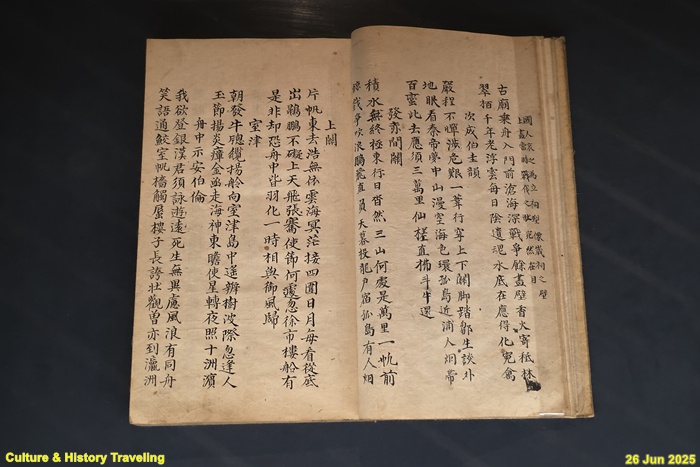 古廟乘舟入門前滄海深戰爭餘畫壁香火寄秪林
翠栢千年老浮雲每日陰遺魂水底在應得化冤禽
次成伯圭韻
嚴程不憚涉危艱一葦行穿上下關脚踏鄒生談外
地眠看泰帝夢中山漫空海色環孤島近浦人烟帶
百蠻此去應須三萬里仙槎直拂斗牛還
發赤間關
積水無終極東行日杳然三山何處是萬里一帆前
上關
片帆東去浩無依雲海冥茫接四圍日月每看從底
出鵾鵬不礙上天飛張騫使節何處忽徐市樓船有
是非却恐舟中皆羽化一時相與御風歸
室津
朝發牛窓纜揚舲向室津島中遙辨樹波際忽逢人
玉節揚炎瘴金函走海神東瞻使星轉夜照十洲濱
舟中示安伯倫
我欲登銀漢君須詠遊遠死生無異慮風浪有同舟
笑語通鮫室帆檣觸蜃樓子長誇壯觀曾亦到瀛洲
Culture & History Traveling
26 Jun 2025